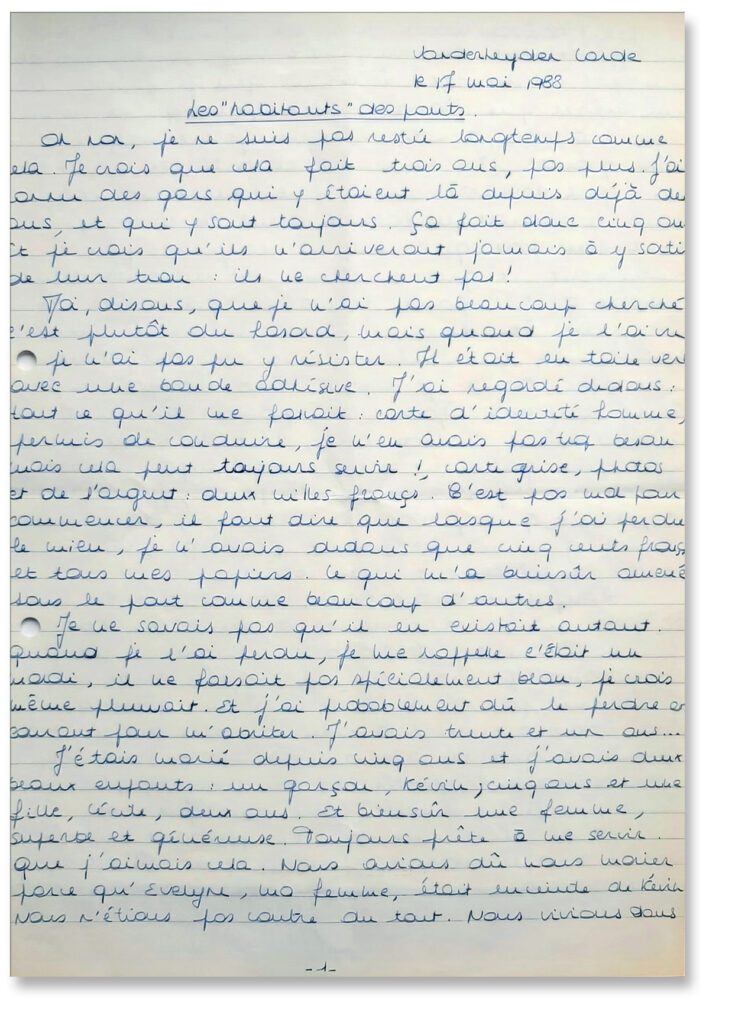 Vanderheyden Carole
le 17 mai 1988
Les "habitants" des ponts.
Oh non, je ne suis pas resté longtemps comme
ela. Je crois que cela fait trois ans, pas plus. J'ai
onnu des gars qui y étaient là depuis déjà de
ans, et qui y sont toujours. Ça fait donc cinq an
Et je crois qu'ils n'arriveront jamais à y sorti
de leur trou : ils ne cherchent pas !
Moi, disons, que je n'ai pas beaucoup cherché
c'est plutôt du hasard, mais quand je l'ai vu
je n'ai pas pu y résister. Il était en toile ver
avec une bande adhésive. J'ai regardé dedans :
tout ce qu'il me fallait : carte d'identité homme,
permis de conduire, je n'en avais pas trop besoin
mais cela peut toujours servir !, carte grise, photos
et de l'argent : deux milles francs. C'est pas mal pour
commencer, il faut dire que lorsque j'ai perdu
le mien, je n'avais dedans que cinq cents francs
et tous mes papiers. Ce qui m'a biensûr amené
sous le pont comme beaucoup d'autres.
Je ne savais pas qu'il en existait autant.
Quand je l'ai perdu, je me rappelle c'était un
mardi, il ne faisait pas spécialement beau, je crois
même pleuvait. Et j'ai probablement dû le perdre en
courant pour m'abriter. J'avais trente et un ans...
J'étais marié depuis cinq ans et j'avais deux
beaux enfants : un garçon, Kévin, cinq ans et une
fille, Cécile, deux ans. Et biensûr une femme,
superbe et généreuse. Toujours prête à me servir.
Que j'aimais cela. Nous avions dû nous marier
parce qu'Evelyne, ma femme, était enceinte de Kévin
Nous n'étions pas contre du tout. Nous vivions dans
-1-